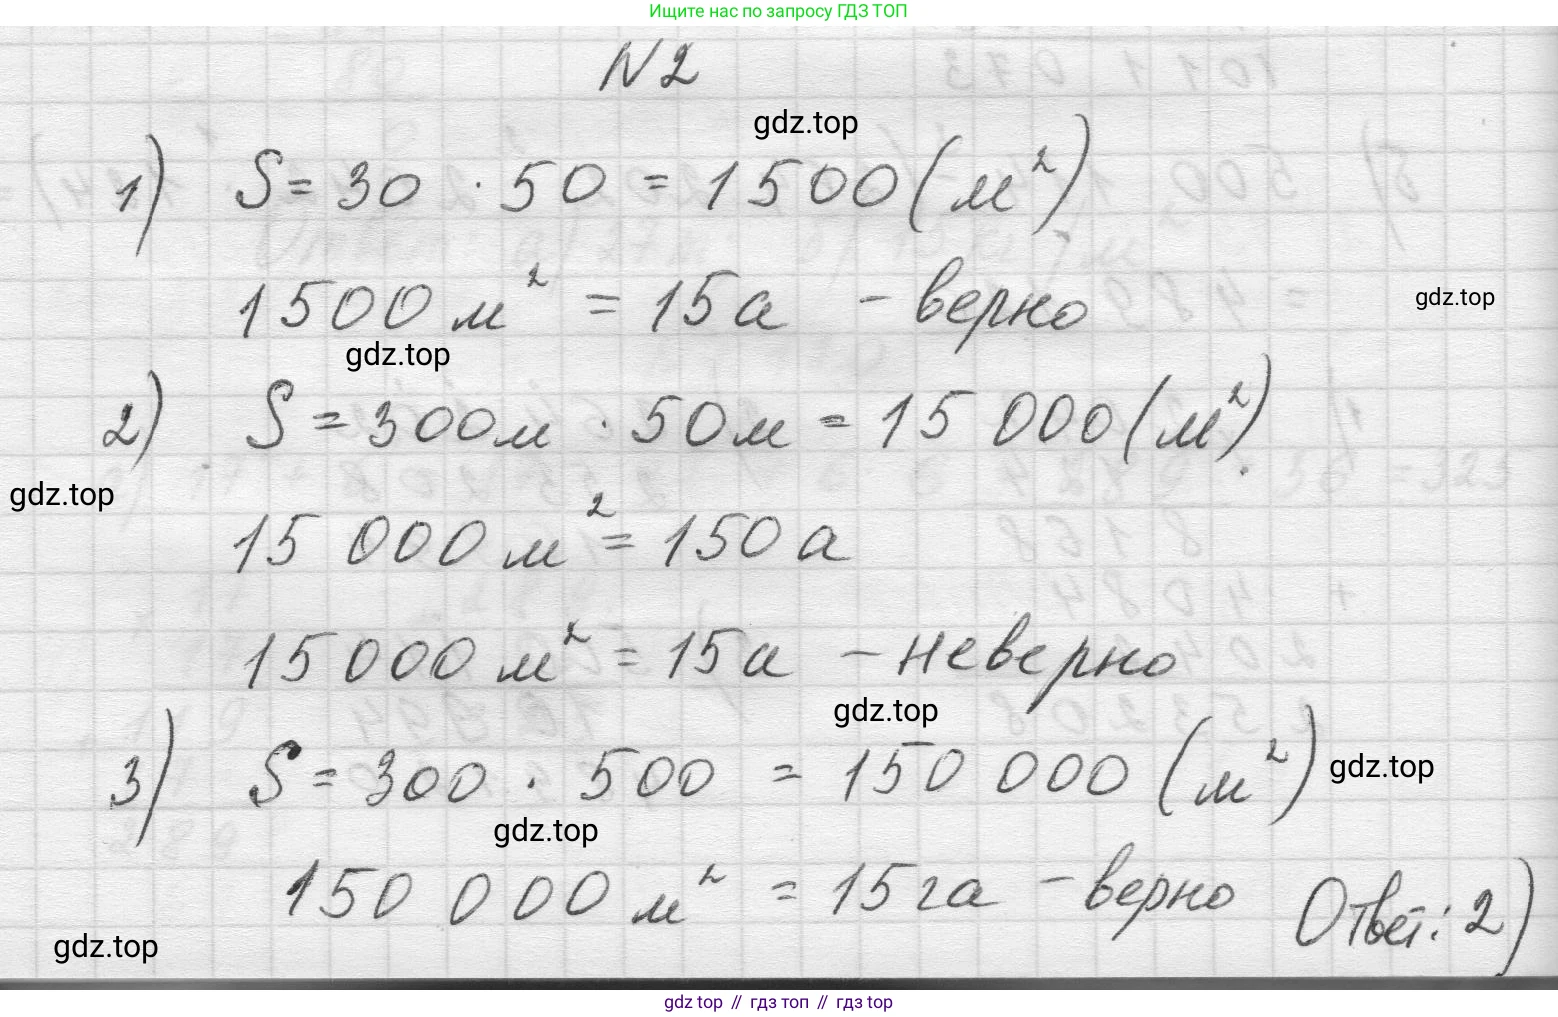 Ищите нас по запросу ГДЗ ТОП
N 2
gdz.top
1) S = 30 · 50 = 1500 (м²)
1500 м² = 15 а - верно
gdz.top
gdz.top
2) S = 300м · 50м = 15 000 (м²)
gdz.top
15 000 м² = 150 а
15 000 м² = 15 а - неверно
gdz.top
3) S = 300 · 500 = 150 000 (м²)
gdz.top
gdz.top
150 000 м² = 15 га - верно Ответ: 2)
gdz.top
gdz top // гдз топ // гдз top